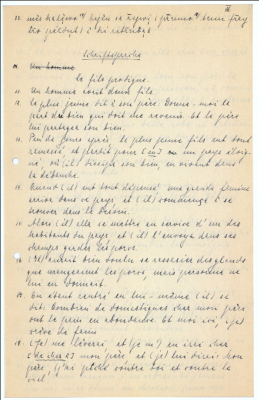 Schriftsprache
Un homme
le fils prodigue.
11. Un homme avait deux fils.
12. Le plus jeune dit à son père: Donne-moi la
part du bien qui doit me revenir. Et le père
leur partagea son bien.
13. Peu de jours après, le plus jeune fils ayant tout
ramassé partit pour un pays éloi-
gné, où (il) dissipa son bien, en vivant dans
la débauche.
14. Quand (il) eut tout dépensé, une grande famine
arriva dans ce pays, et (il) commença à se
trouver dans le besoin.
15. Alors (il) alla se mettre au service d'un des
habitants du pays et (il) l'envoya dans ses
champs garder les porcs.
16. (Il) aurait bien voulu se rassasier des glands
que mangeaient les porcs, mais personne ne
lui en donnait.
17. Étant rentré en lui-même (il) se
dit: Combien de domestiques chez mon père
ont le pain en abondance. Et moi ici, (je)
crève de faim
18. (Je) me lèverai et (je m') en irai chez
mon père, et (je) lui dirai: Mon
père, j'ai péché contre toi et contre le
ciel.